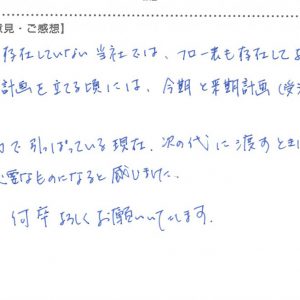 意見・ご感想】
存在していない当社では、フロー表も存在して
計画を立てる頃には、今期と来期計画(受注
で引っぱっている現在、次の代に渡すとき
必要なものになると感じました。
何卒よろしくお願いいたします。